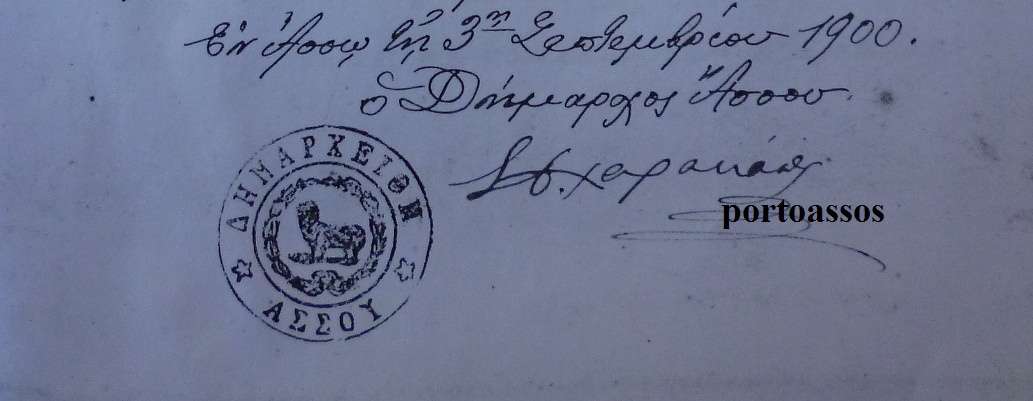 Ἐν Ἄσσῳ τῇ 3ῃ Σεπτεμβρίου 1900.
ὁ Δήμαρχος Ἄσσου.
portoassos
ΔΗΜΑΡΧΕΙΟΝ
ΑΣΣΟΥ